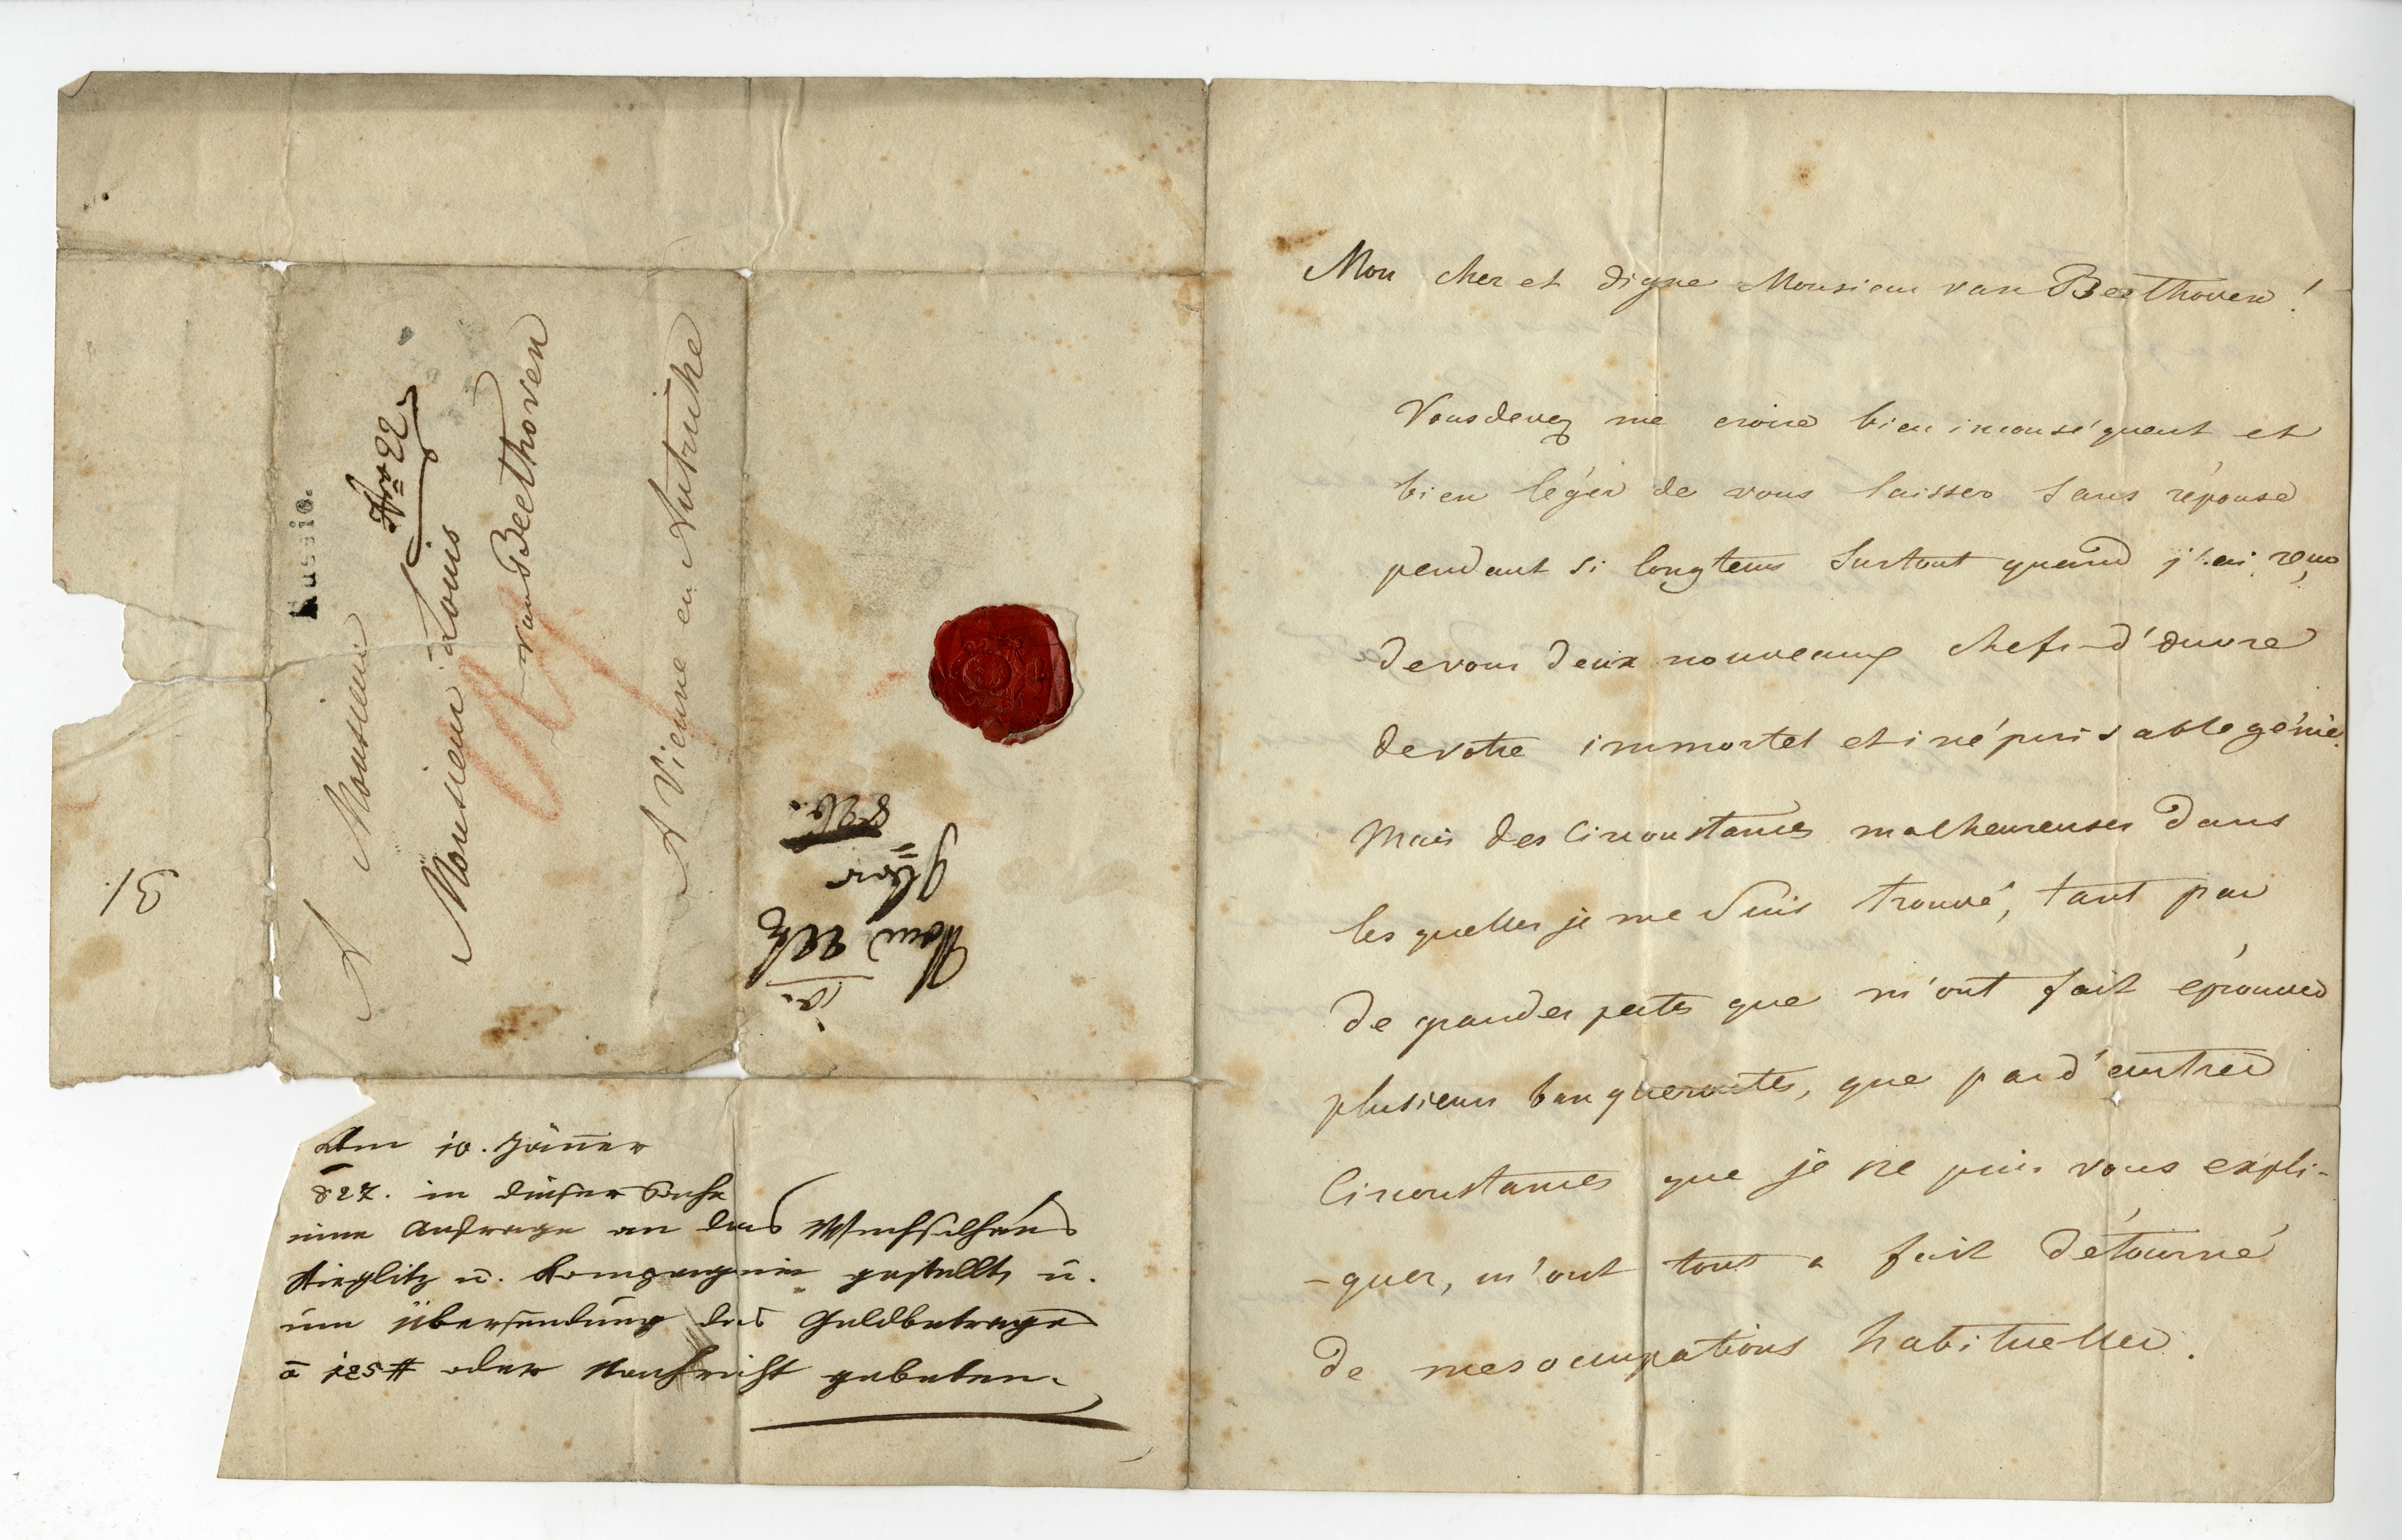 Russie.
Nro 22
A Monsieur
Monsieur Louis
van Beethoven
A Vienne en Autriche
31
826.
Am 10. Jänner
827. in dieser Sache
eine Anfrage an das Wechselhaus
Stieglitz u. Kompagnie gestellt, u.
um Übersendung des Geldbetrages
à 125 # oder Nachricht gebeten.
Mon cher et digne Monsieur van Beethoven!
Vous devez me croire bien inconséquent et
bien léger de vous laisser sans réponse
pendant si longtems surtout quand j'ai reçu
de vous deux nouveaux chefs-d'œuvre
de votre immortel et inépuisable génie.
Mais des circonstances malheureuses dans
les quelles je me suis trouvé, tant par
de grandes pertes que m'ont fait éprouver
plusieurs banqueroutes, que par d'autres
circonstances que je ne puis vous expli-
-quer, m'ont tout a fait détourné
de mes occupations habituelles.